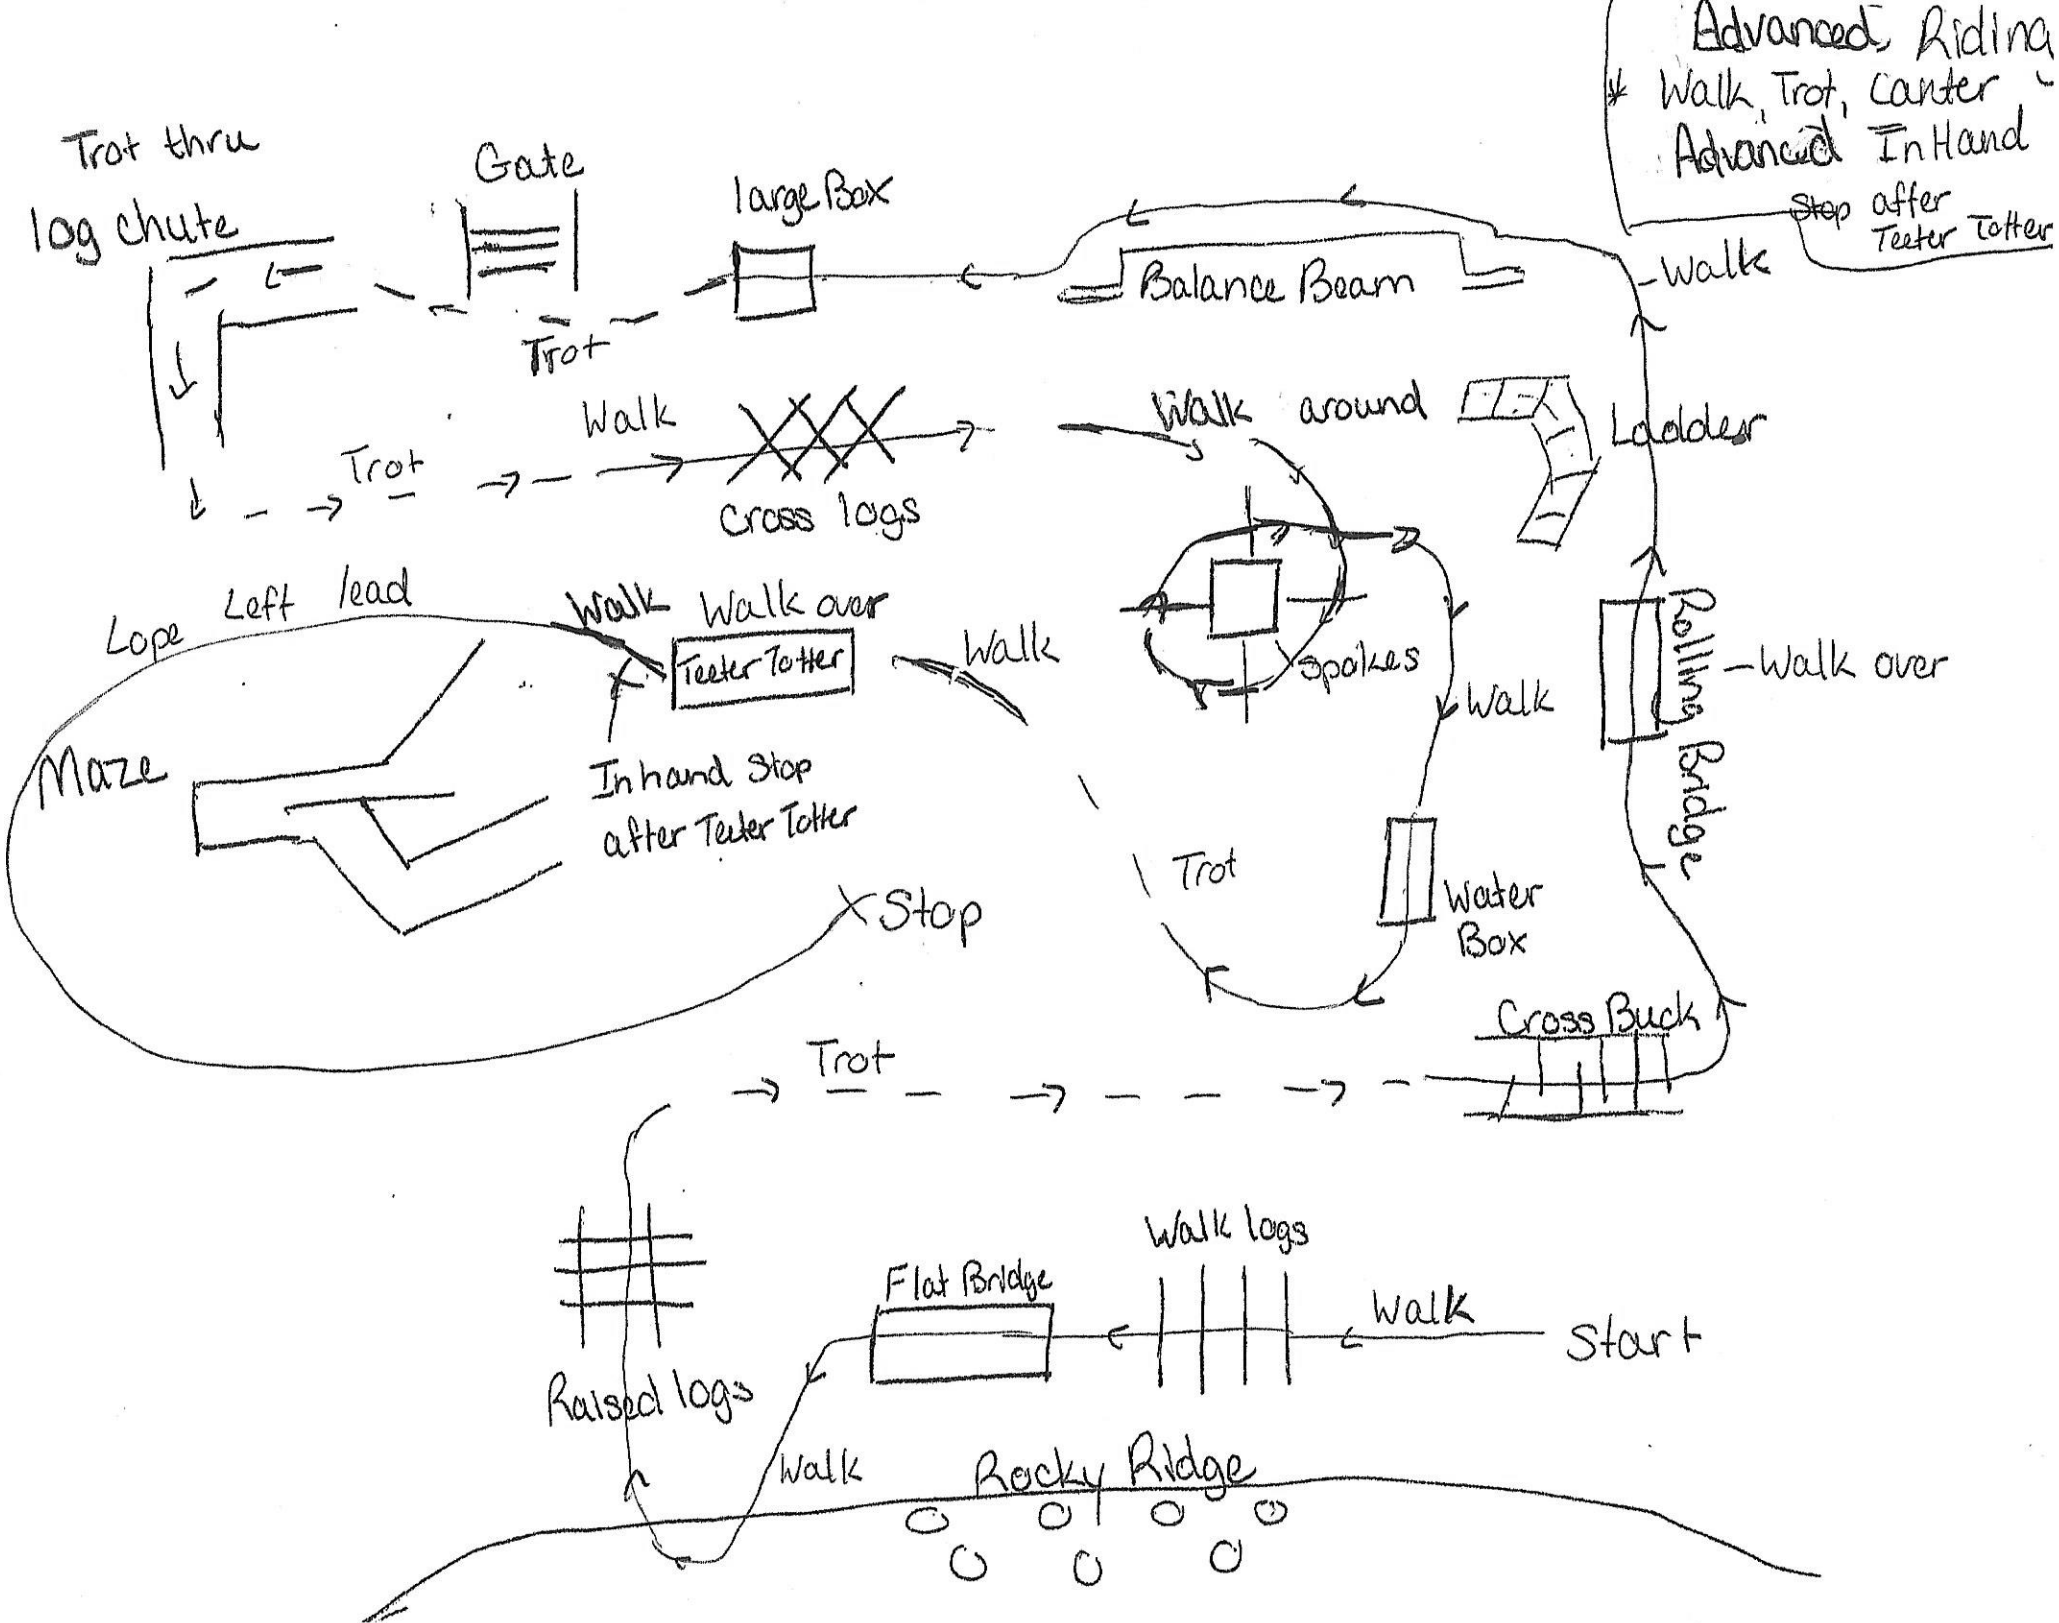 Advanced, Riding
Walk, Trot, Canter
Advanced InHand
Stop after
Teeter Totter
Trot thru
log chute
Gate
large Box
Balance Beam
Walk
Trot
Walk
Walk around
Ladder
Trot
Cross logs
Lope Left lead
Walk
Walk over
Teeter Totter
Walk
Spokes
Walk
Rolling Bridge
Walk over
Maze
Inhand Stop
after Teeter Totter
Trot
Water
Box
Stop
Cross Buck
Trot
Walk logs
Flat Bridge
Walk
Start
Raised logs
Walk
Rocky Ridge